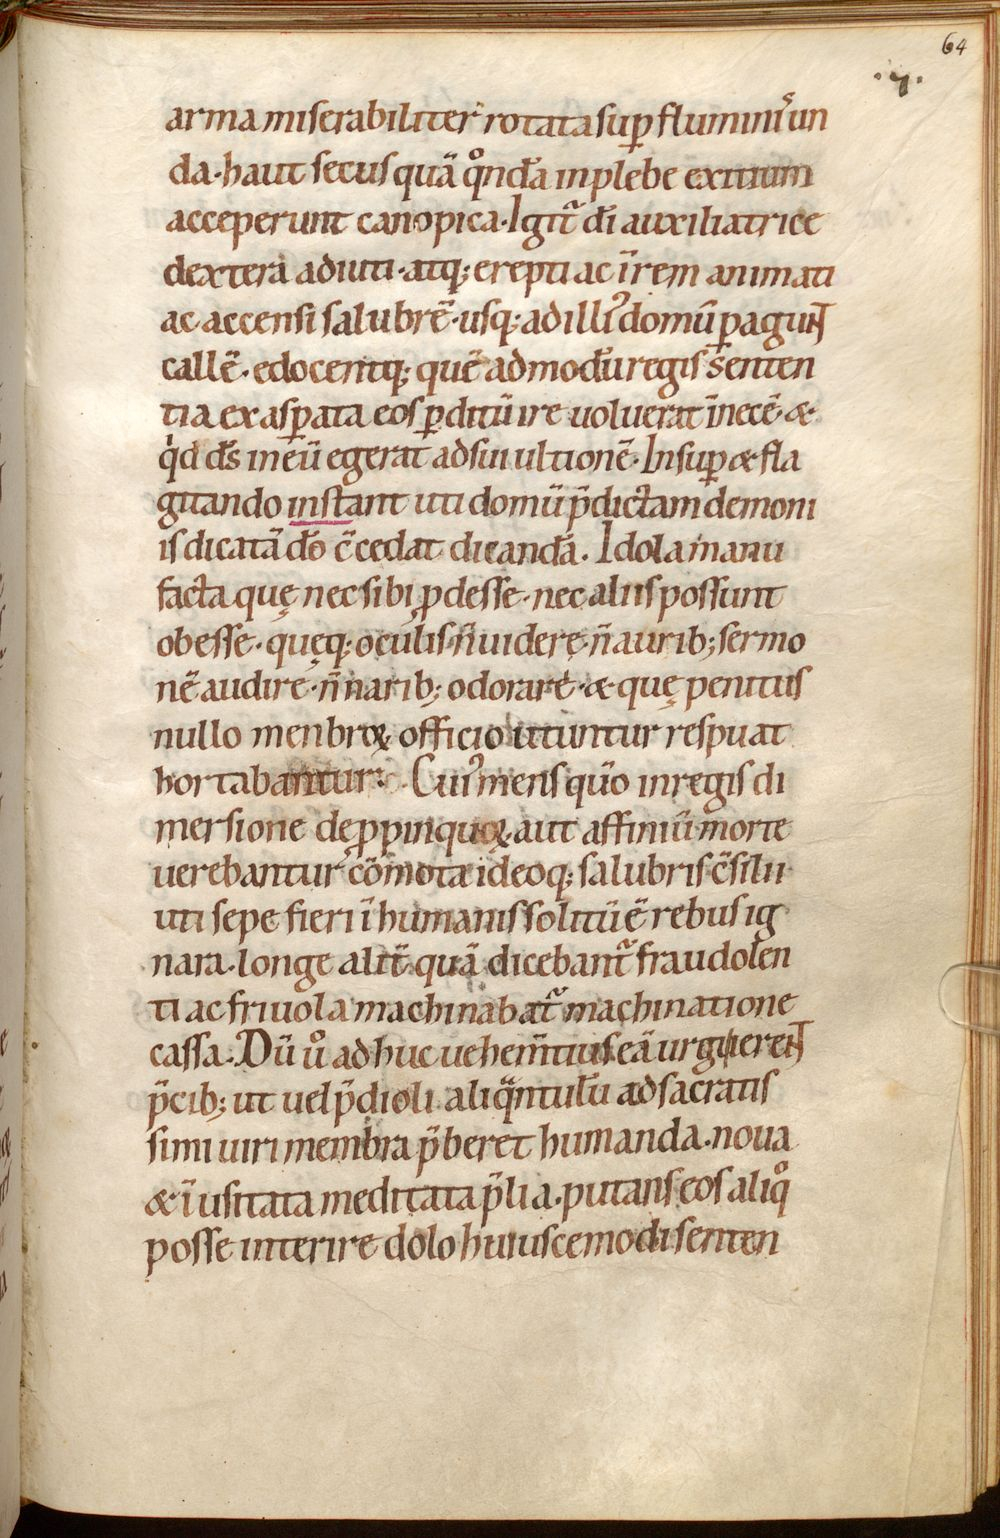 64
.7.
arma miserabiliter rotata sup̱ fluminis un
da·haut secus quā qͦndā in plebe exitium
acceperunt canopica·Igit̃ di auxiliatrice
dextera adiuti·atq; erepti ac īrem animati
ac accensi salubrē·usq; ad illi᾽ domū ꝑagunt
callē·edocentq; quē admodū regis s̄enten
tia exasꝑata eos ꝑditū ire uoluerat īnecē·&·
qͥd dn̄s in eū egerat ad sui ultionē·Insuꝑ & fla
gitando instant uti domū p̄dictam demoni
is dicatā do c̄cedat dicandā. Idola manu
facta quę nec sibi ꝓdesse·nec aliis possunt
obesse·quęq; oculis n̄ uidere·n̄ aurib; sermo
nē audire·n̄ narib; odorare·&·quę penitus
nullo menbroꝝ officio utuntur respuat
hortabantur. Cui᾽ mens quo in regis di
mersione de ꝓpinquoꝝ aut affiniū morte
uerebantur cōmota ideoq; salubris c̄silii·
uti sepe fieri ī humanis solitū ē rebus ig
nara·longe alit̄ quā dicebant̃ fraudolen
ti ac friuola machinabat̃ machinatione
cassa. Dū uͦ adhuc uehem̄tius eā urguerent
p̄cib; ut uel p̄dioli aliqͣntulū ad sacratis
simi uiri membra p̄beret humanda·noua
& īusitata meditata p̄lia·putans eos aliqͦ
posse interire dolo huiuscemodi senten